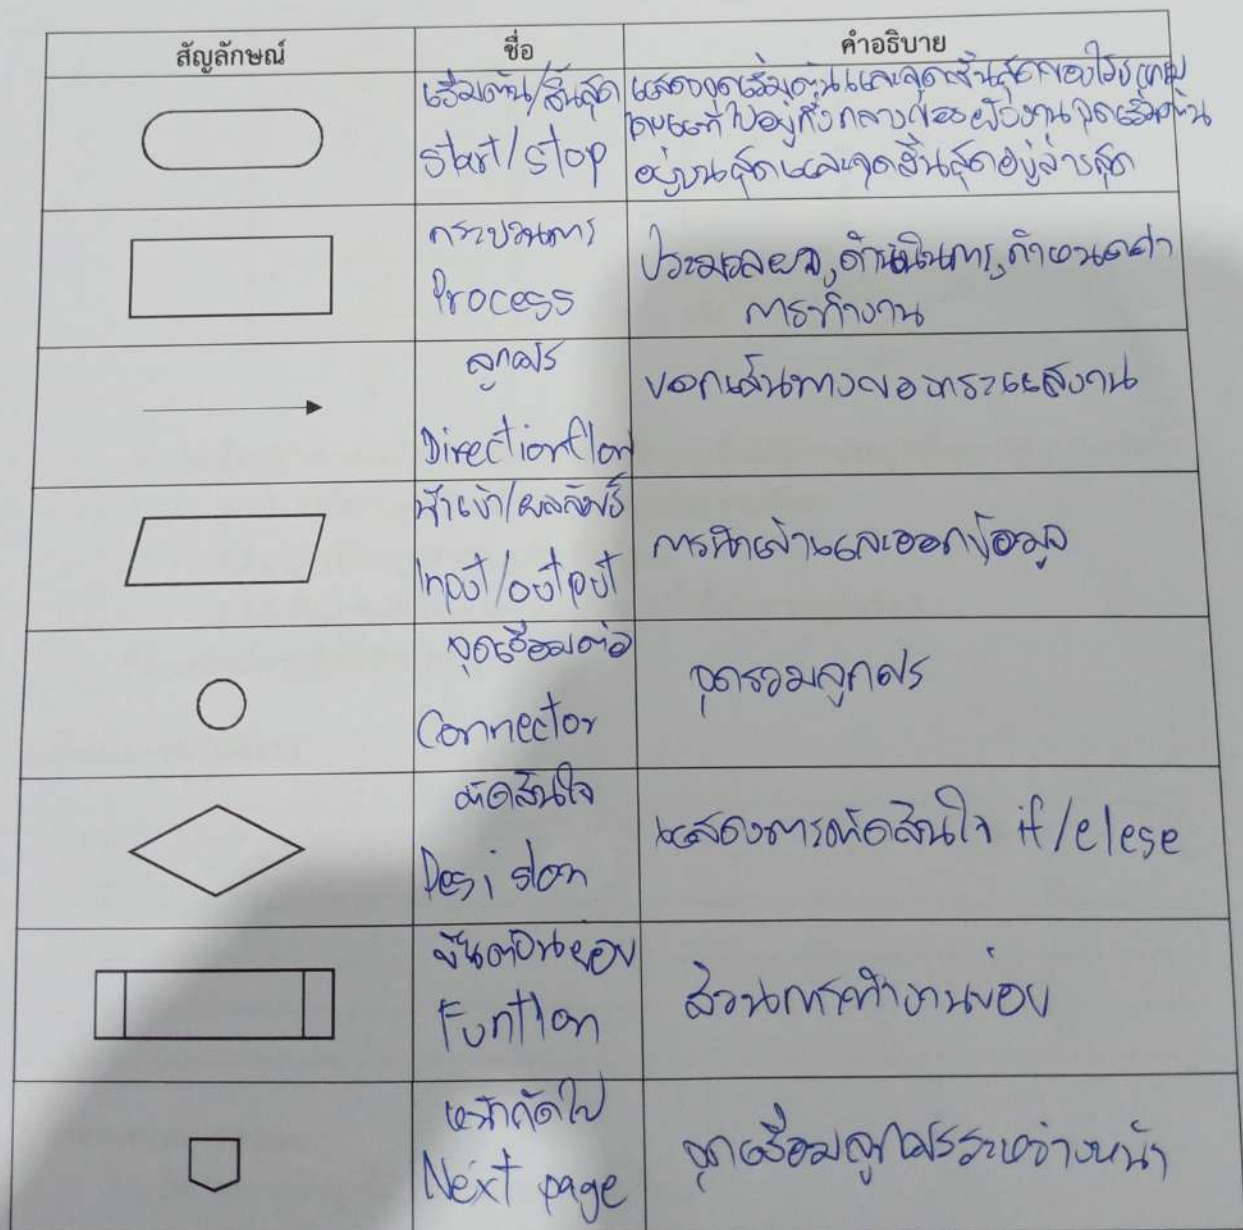 สัญลักษณ์ ชื่อ คำอธิบาย
เริ่มต้น/สิ้นสุด
start/stop
แสดงจุดเริ่มต้นและจุดสิ้นสุดของโปรแกรม
กึ่งกลางของผังงานจุดเริ่มต้น
อยู่บนสุดและจุดสิ้นสุดอยู่ล่างสุด
กระบวนการ
Process
ประมวลผล,ดำเนินการ,กำหนดค่า
การทำงาน
ลูกศร
Direction flow
บอกเส้นทางของกระแสงาน
นำเข้า/ผลลัพธ์
Input/output
การนำเข้าและออกข้อมูล
จุดเชื่อมต่อ
Connector
จุดรวมลูกศร
ตัดสินใจ
Desision
แสดงการตัดสินใจ if/elese
ขั้นตอนย่อย
Funtion
ส่วนการทำงานย่อย
หน้าถัดไป
Next page
จุดเชื่อมลูกศรระหว่างหน้า